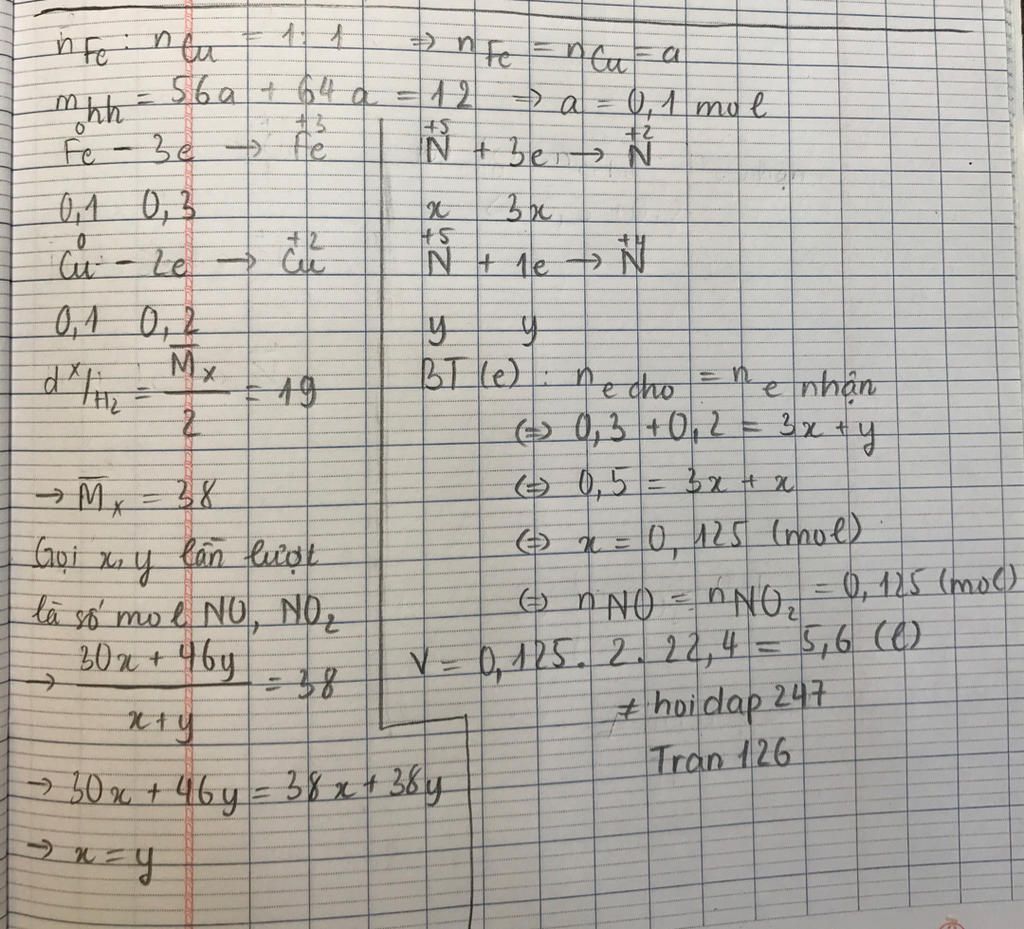 nFe : nCu = 1:1 => nFe = nCu = a
mhh = 56a + 64a = 12 => a = 0,1 mol
0 +3
Fe - 3e → Fe
0,1 0,3
0 +2
Cu - 2e → Cu
0,1 0,2
d x/H2 = M̅x / 2 = 19
→ M̅x = 38
Gọi x, y lần lượt
là số mol NO, NO2
→ 30x + 46y / x + y = 38
→ 30x + 46y = 38x + 38y
→ x = y
+5 +2
N + 3e → N
x 3x
+5 +4
N + 1e → N
y y
BT (e) : n e cho = n e nhận
(=) 0,3 + 0,2 = 3x + y
(=) 0,5 = 3x + x
(=) x = 0,125 (mol)
(=) nNO = nNO2 = 0,125 (mol)
V = 0,125. 2. 22,4 = 5,6 (l)
≠ hoidap 247
Tran 126